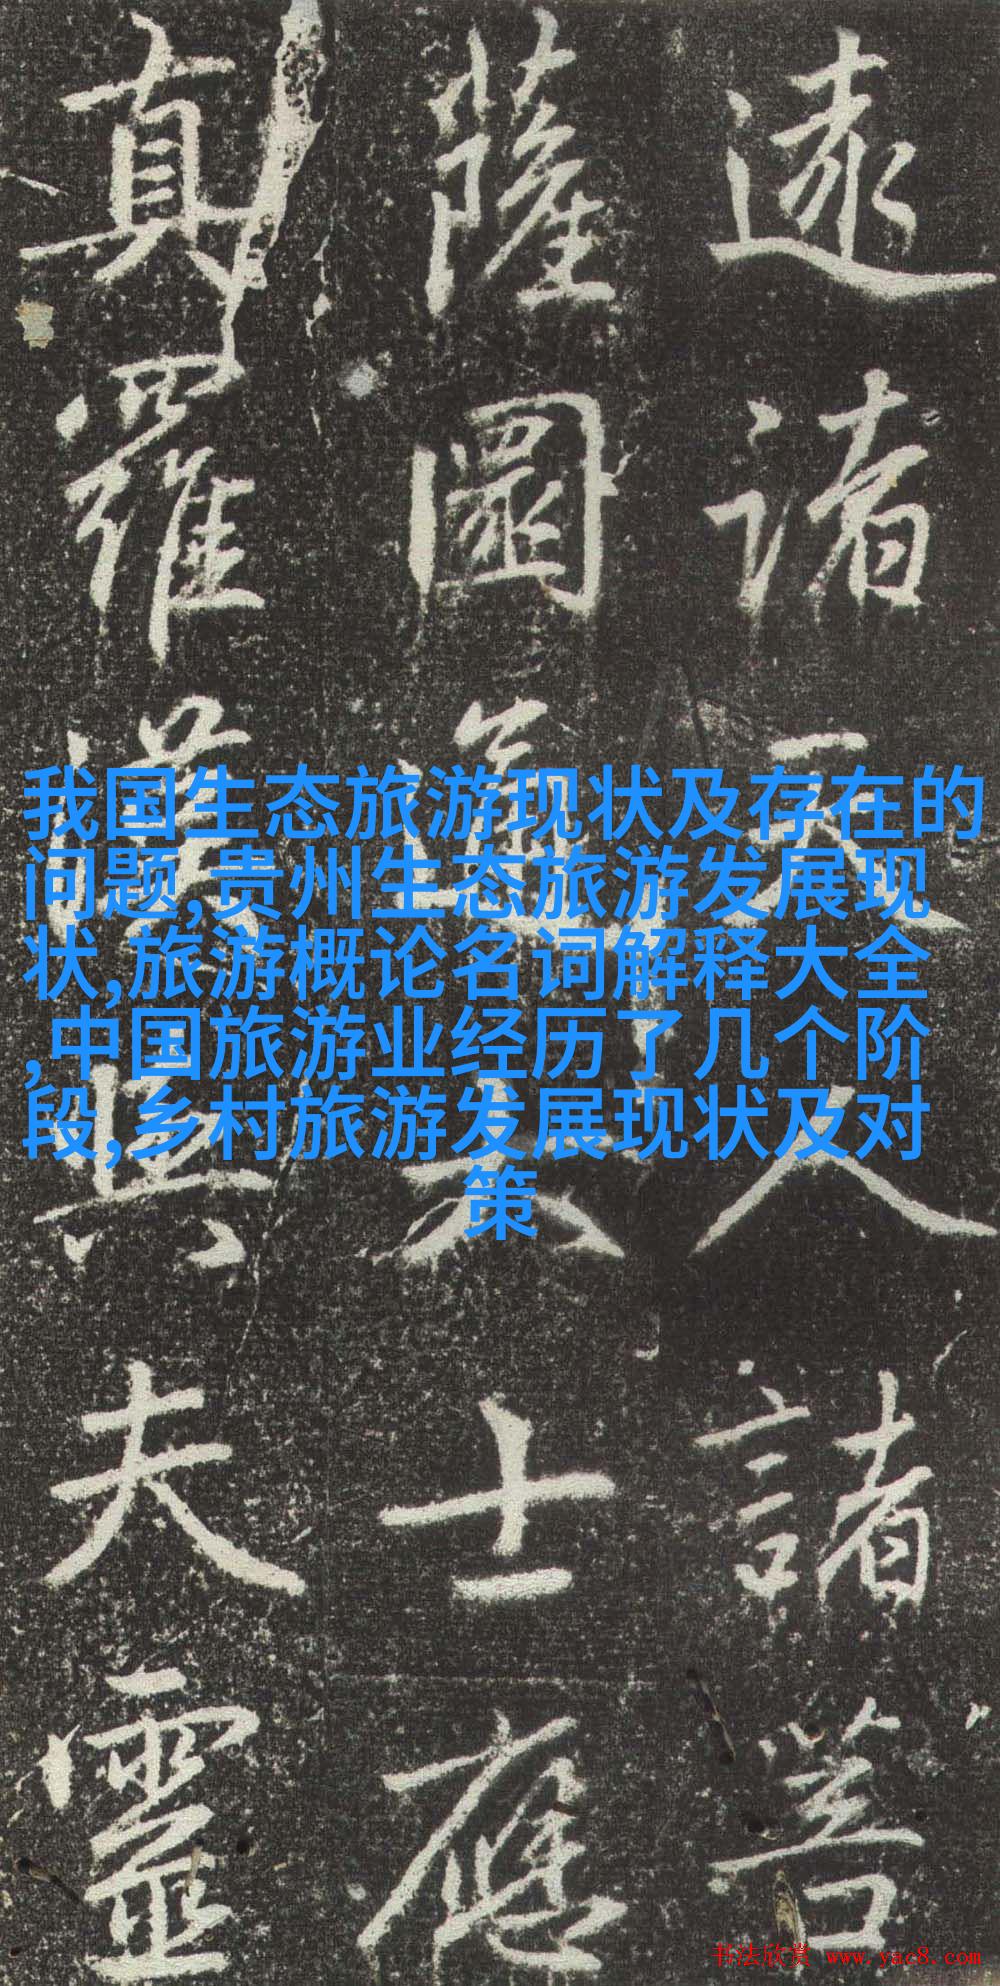 逮諸天人諸菩
薩圜通大士應
真羅漢與夫靈
我国生态旅游现状及存在的
问题,贵州生态旅游发展现
状,旅游概论名词解释大全
,中国旅游业经历了几个阶
段,乡村旅游发展现状及对
策
书法欣赏 www.yac8.com